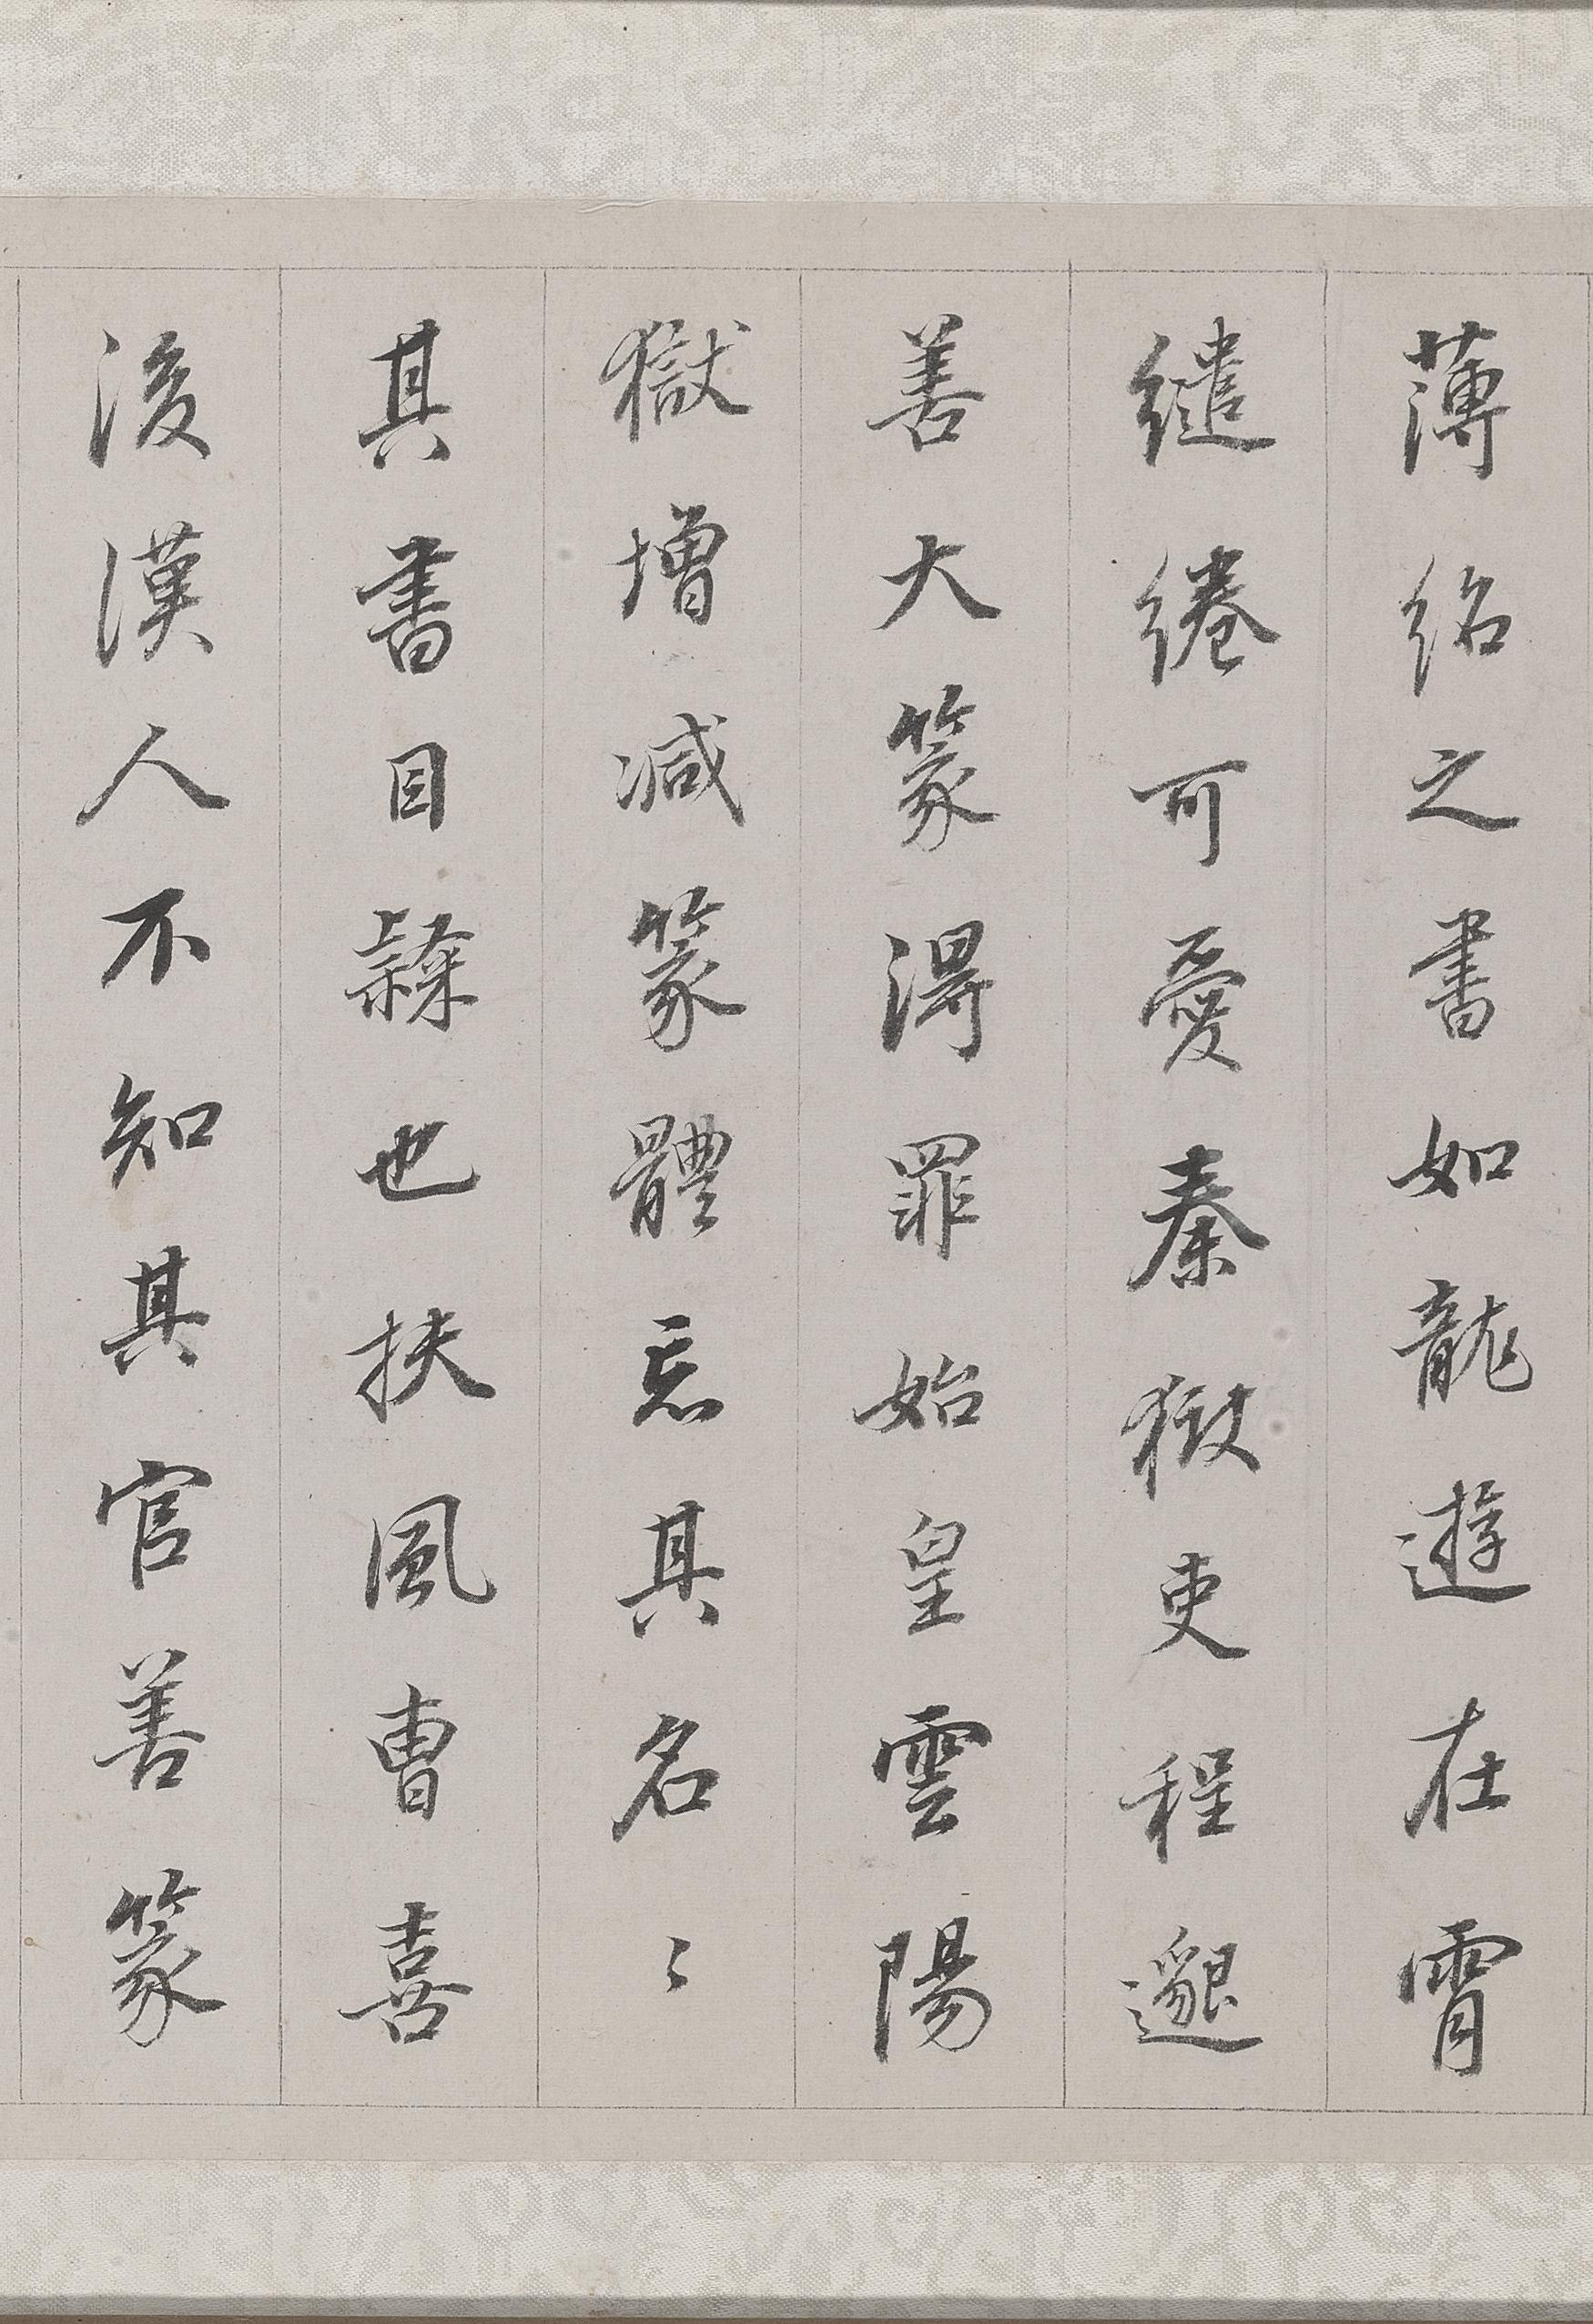 薄紹之書如龍遊在霄
繾綣可愛秦獄吏程邈
善大篆得罪始皇雲陽
獄增減篆體忘其名〻
其書目隸也扶風曹喜
後漢人不知其官善篆